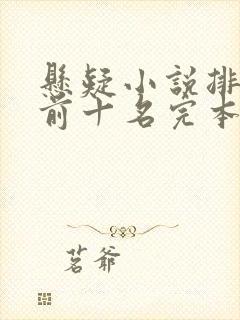 懸疑小說排
前十名完本
茗爺